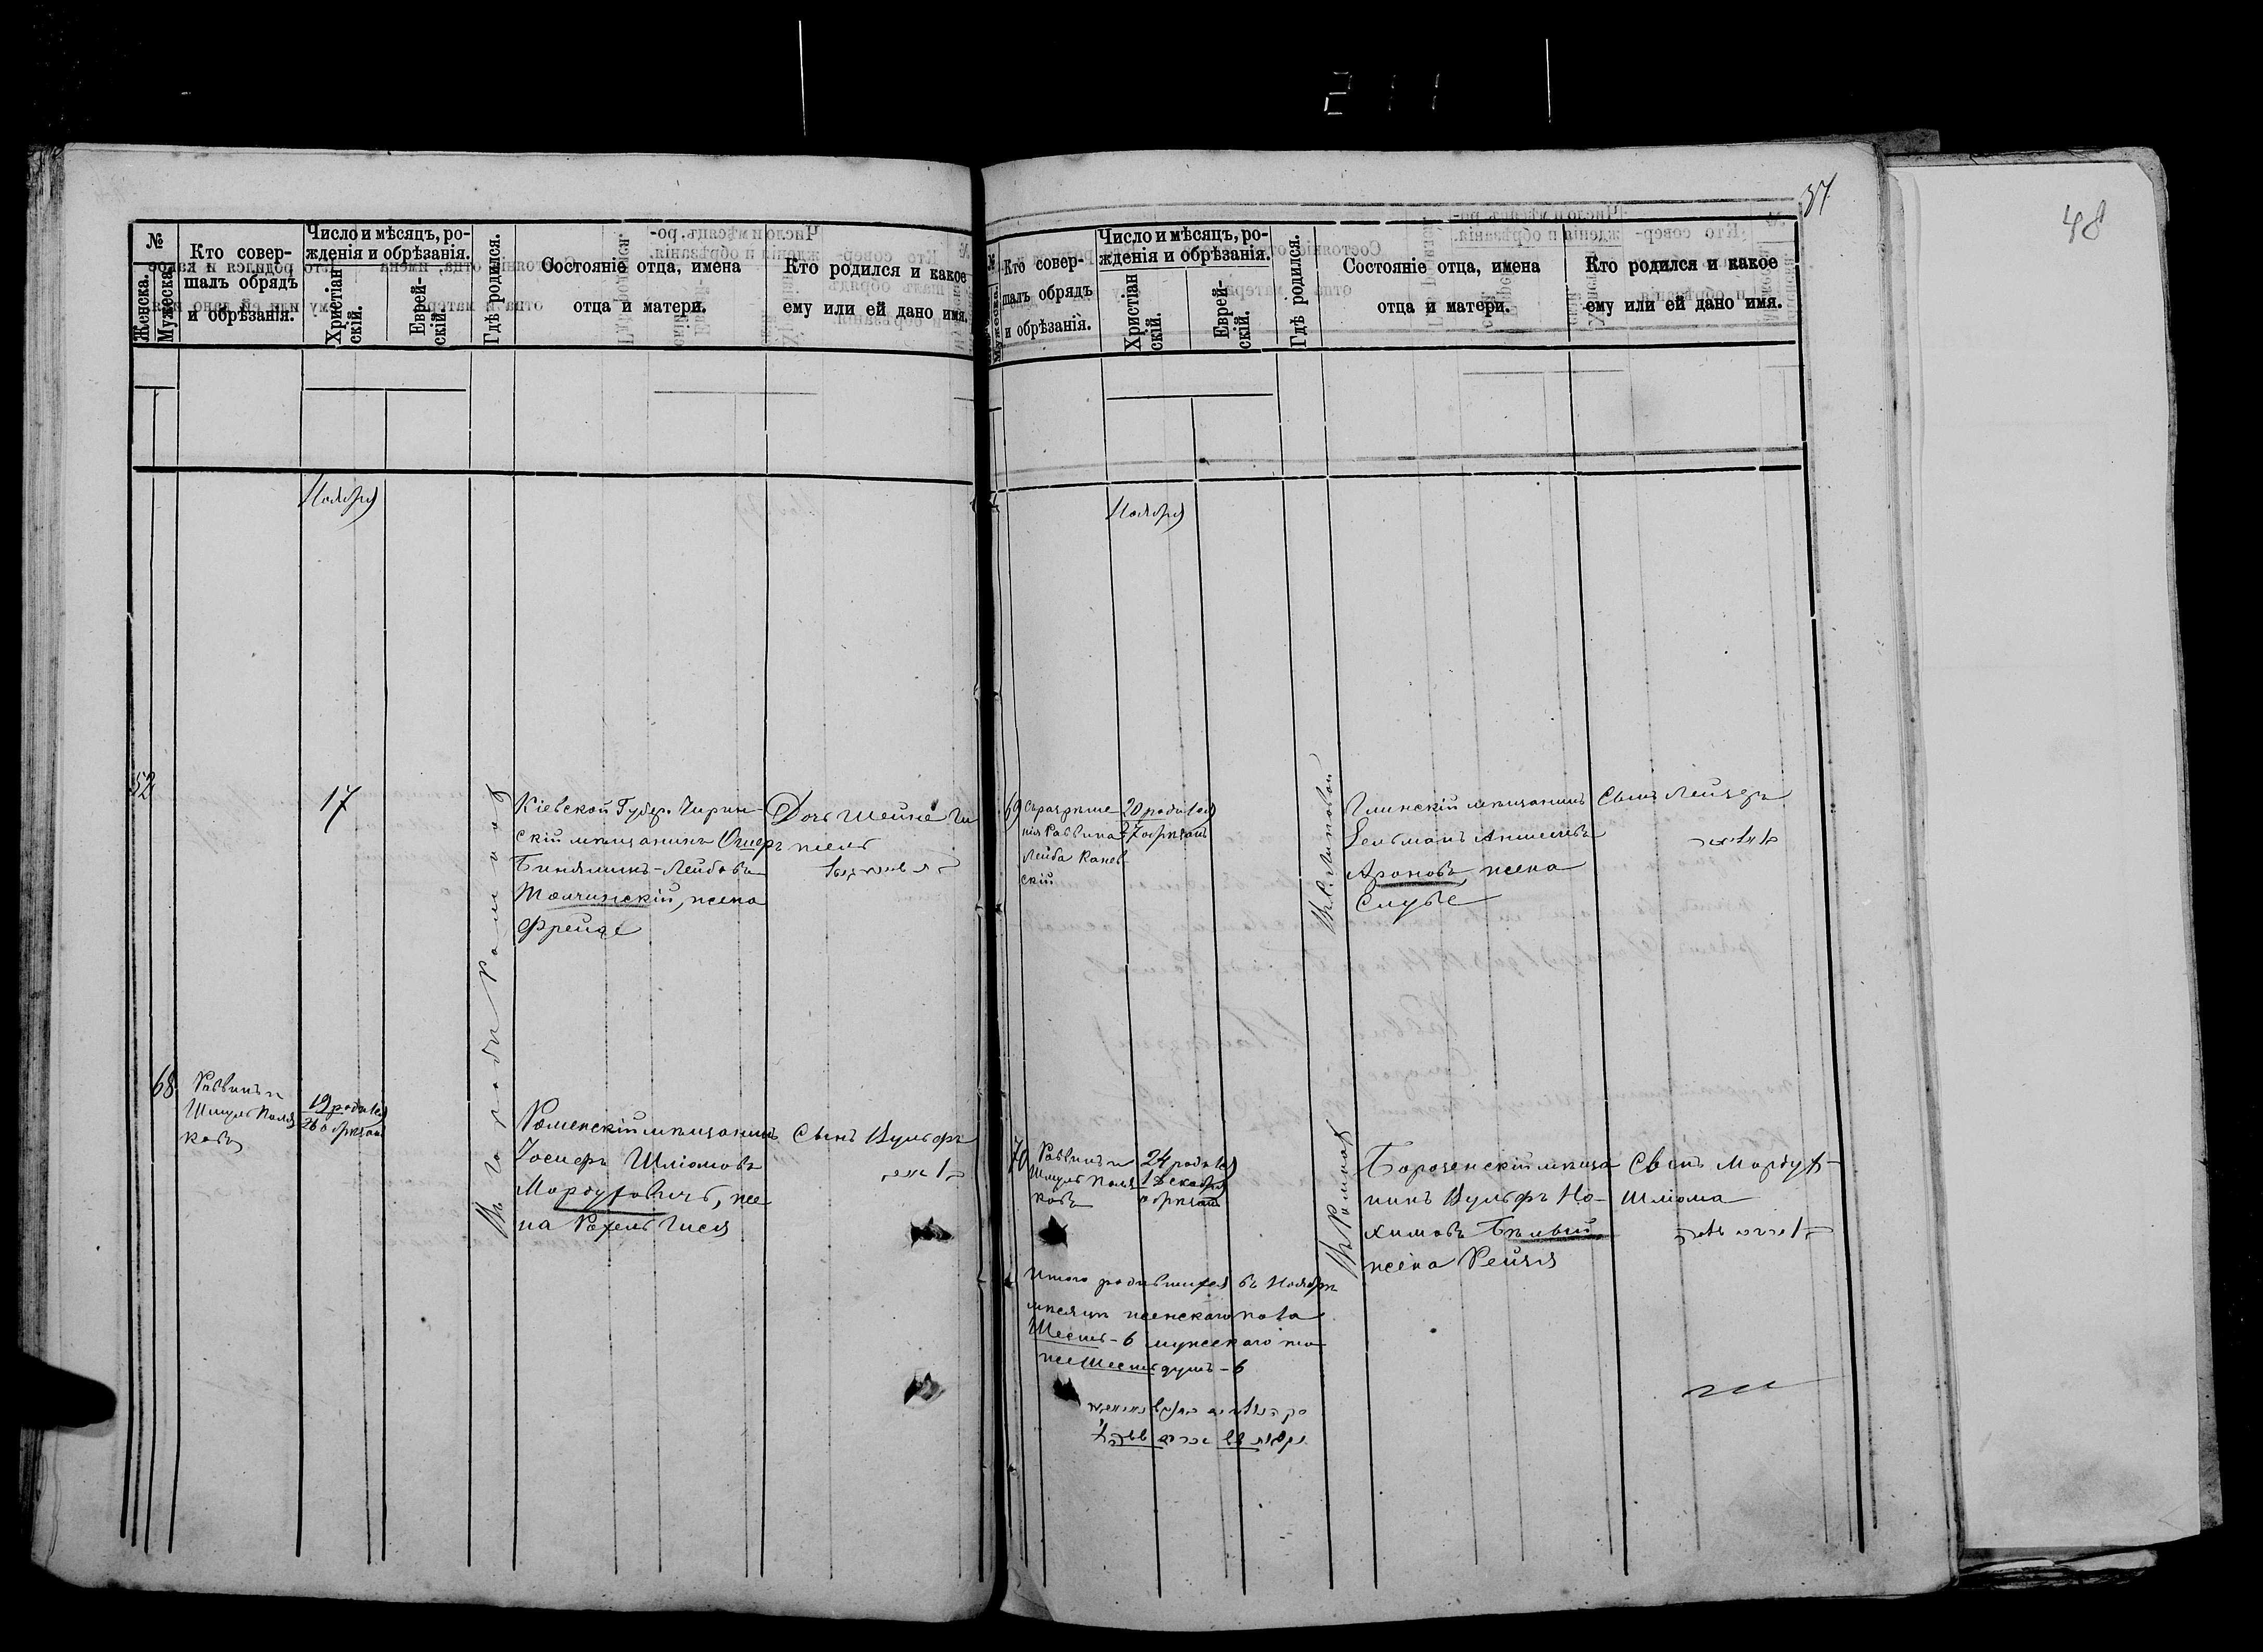 211
37
48
№
Женска.
Мужеска.
Кто совер-
шалъ обрядъ
и обрѣзанія.
Число и мѣсяцъ, ро-
жденія и обрѣзанія.
Христіан
скій.
Еврей-
скій.
Гдѣ родился.
Состояніе отца, имена
отца и матери.
Кто родился и какое
ему или ей дано имя.
Ноября
52
17
Въ городѣ Ромнах
Кіевской Губер. Чирин-
скій мѣщанинъ Ошеръ
Бинямин-Лейбовъ
Толчинскій, жена
Фрейде
Дочь Шейне
68
Раввинъ
Шмуль Поля
ковъ
19 родился
26 обрѣзан
Роменскій мѣщанинъ
Іосифъ Шліомовъ
Мордуховичъ, же
на Рохель Гися
Сынъ Вульфъ
№
Мужеска.
Кто совер-
шалъ обрядъ
и обрѣзанія.
Число и мѣсяцъ, ро-
жденія и обрѣзанія.
Христіан
скій.
Еврей-
скій.
Гдѣ родился.
Состояніе отца, имена
отца и матери.
Кто родился и какое
ему или ей дано имя.
Ноября
69
Съ разрѣше
нія Раввина
Лейба Канев
скій
20 родился
27 обрѣзанъ
Въ с. Липовой
Глинскій мѣщанинъ
Зельманъ Аншелевъ
Ароновъ, жена
Слуве
Сынъ Лейзеръ
70
Раввинъ
Шмуль Поля
ковъ
24 родился
1 Декабря
обрѣзанъ
Въ Ромнах
Борозенскій мѣща
нинъ Вульфъ Но-
химовъ Бѣлый
жена Рейзя
Сынъ Мордух-
Шліома
Итого родившихся въ Ноябрѣ
мѣсяцѣ женскаго пола
Шесть-6 мужескаго то
же Шесть душъ-6